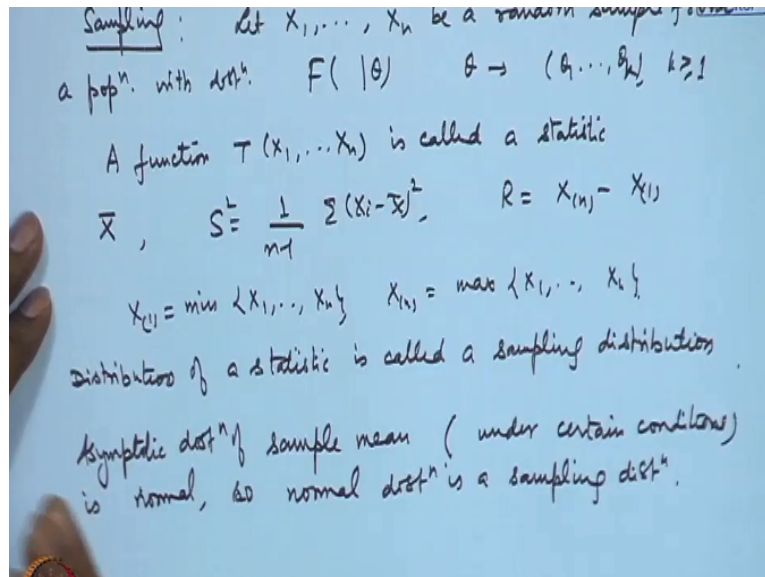 Sampling : Let X₁, ..., Xₙ be a random sample from
a popⁿ. with distⁿ. F( |θ) θ → (θ₁, ..., θₖ), k ≥ 1
A function T (X₁, ... Xₙ) is called a statistic
X̄, S² = 1/(n-1) Σ (Xᵢ - X̄)², R = X₍ₙ₎ - X₍₁₎
X₍₁₎ = min {X₁, .., Xₙ} X₍ₙ₎ = max {X₁, .., Xₙ}
Distribution of a statistic is called a sampling distribution.
Asymptotic distⁿ of sample mean ( under certain conditions)
is normal, so normal distⁿ is a sampling distⁿ.